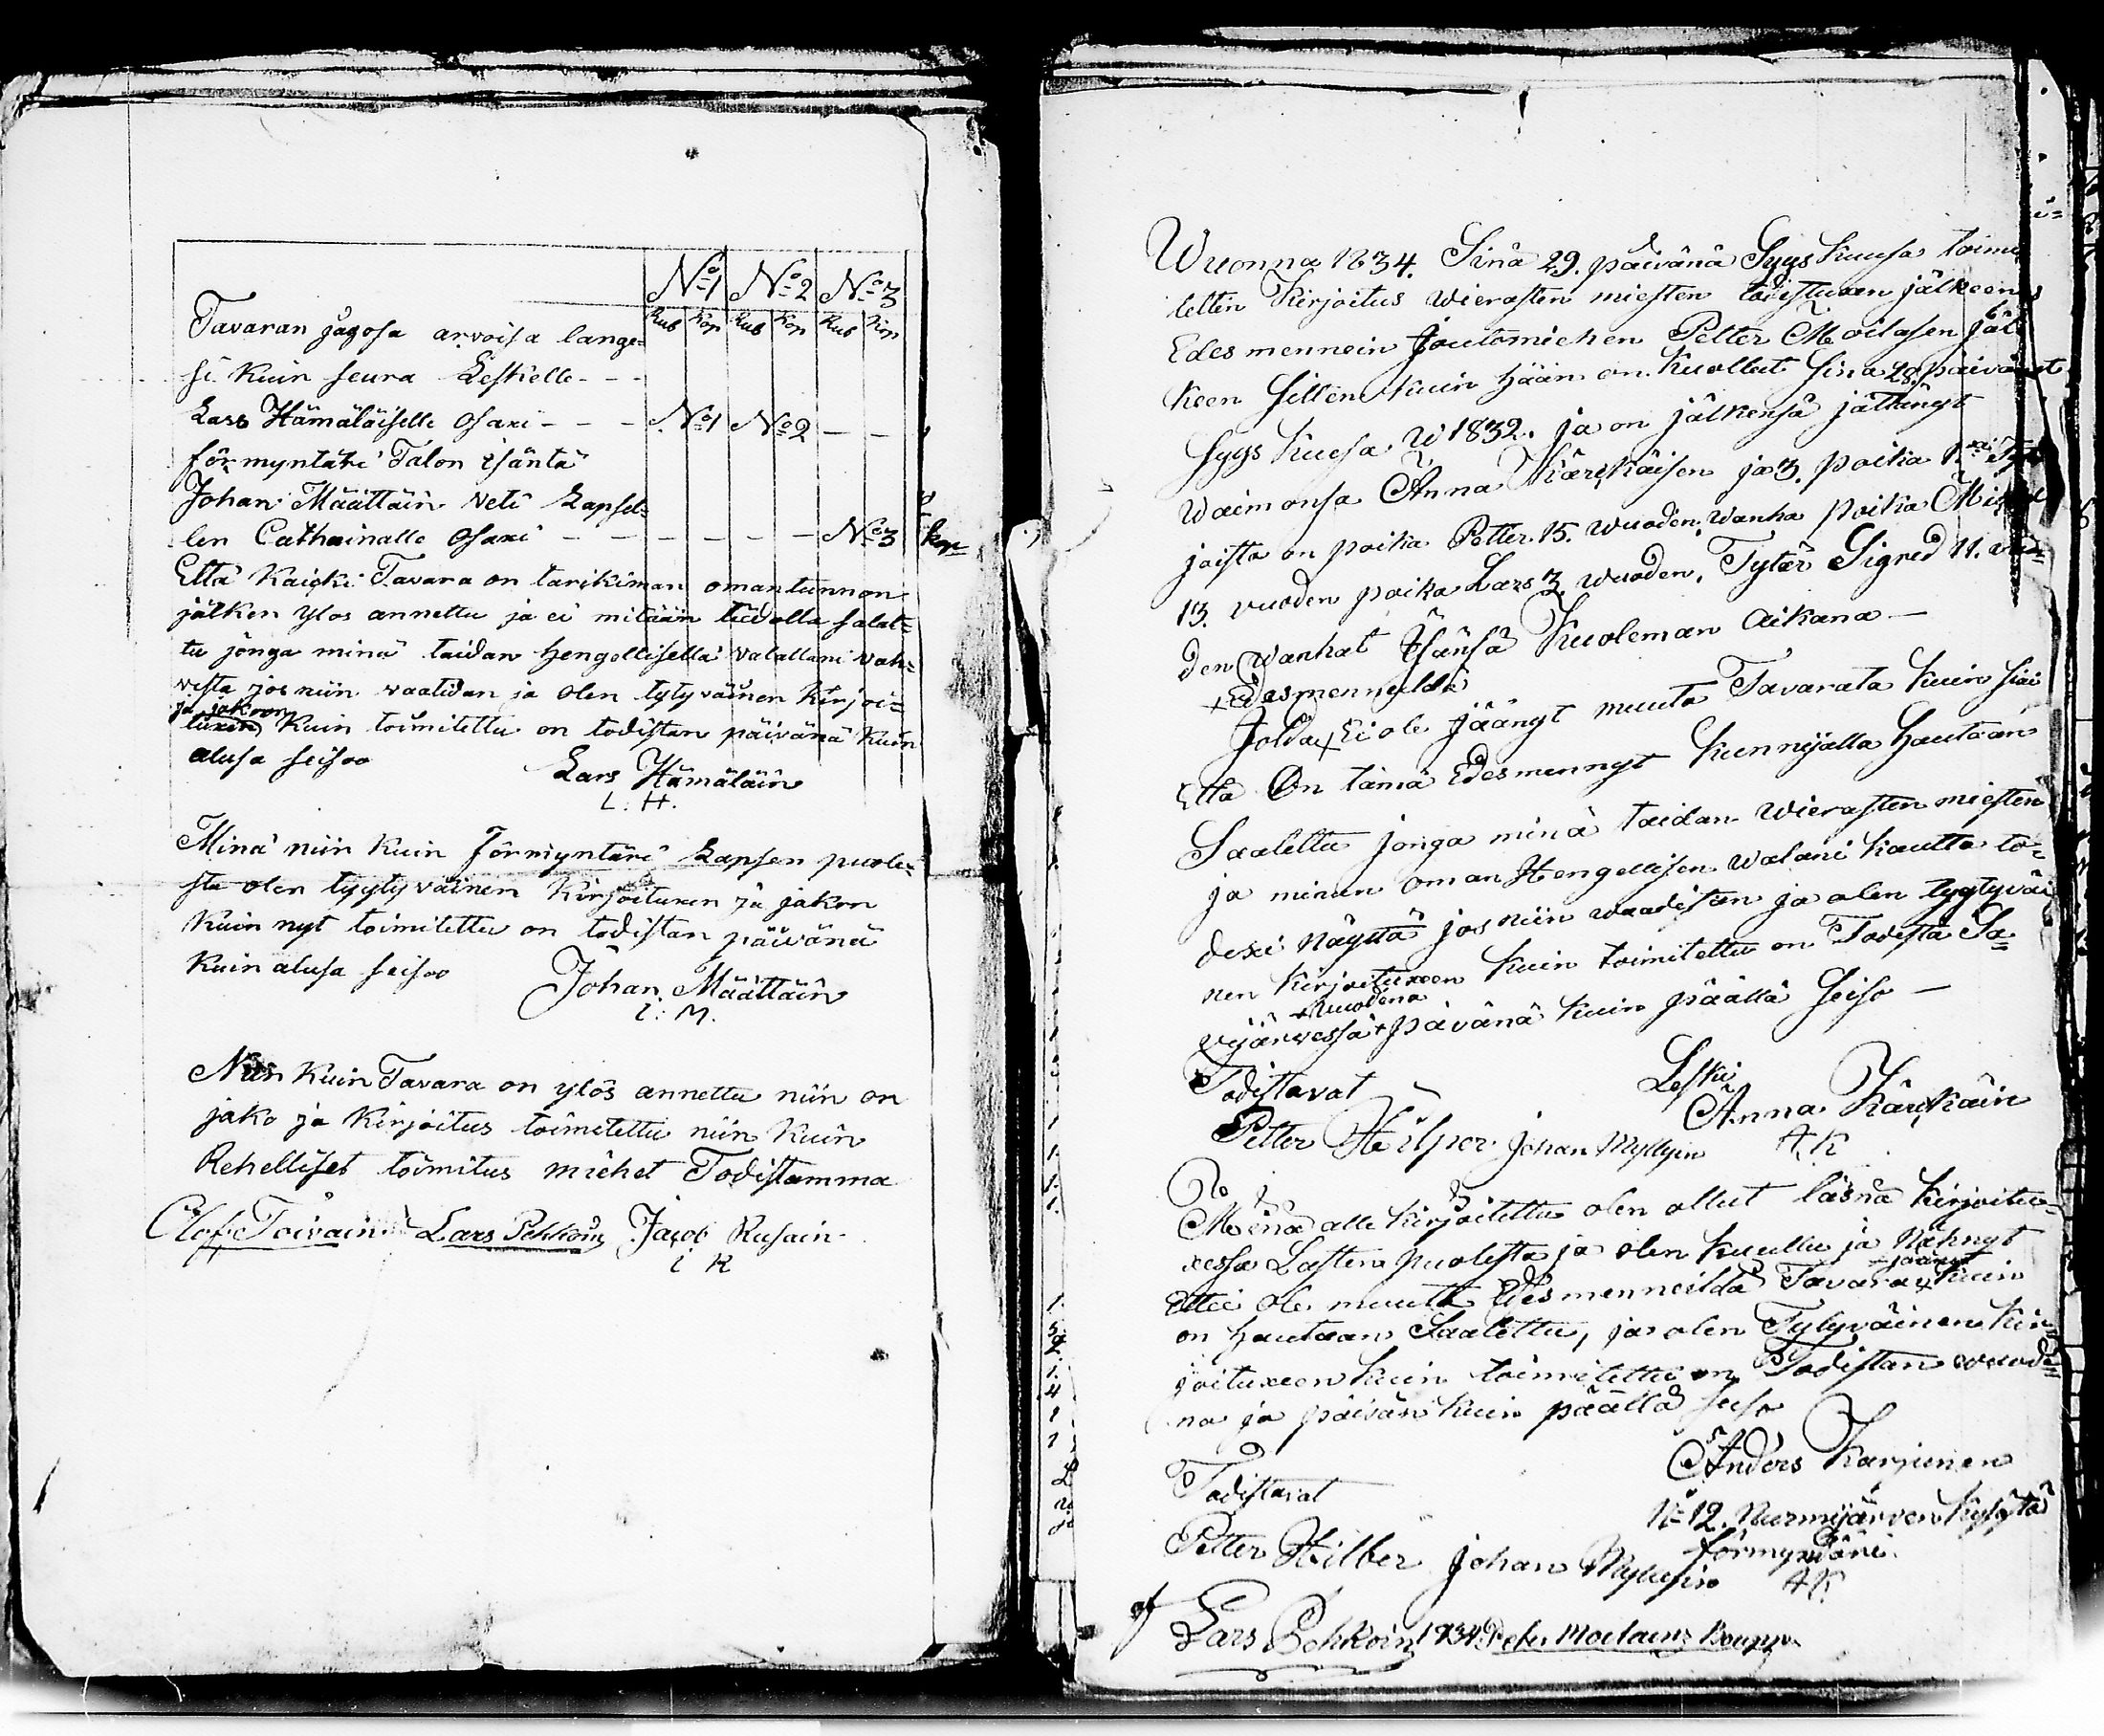 No 1 No 2 No 3
Rub Kop Rub Kop Rub Kop
Tavaran jagosa arvoisa lange=
si kuin seura Leskelle - - -
Lars Hämäläiselle Osaxi - - - No 1 No 2 - -
förmyntäri Talon isäntä
Johan Määttäin veti Lapsel=
len Catharinalle Osaxi - - - - - - No 3
Että Kaicki Tavara on tarkiman omantunnon
jälken ylos annettu ja ei mitään tiedolla salat=
tu jonga minä taidan hengellisellä valallani vah=
vista jos niin vaatidan ja olen tytyväinen Kirjoi=
ja jakoon
tuxen kuin toimitettu on todistan päivänä kuin
alusa seisoo
Lars Hämäläin
L. H.
Minä niin kuin Förmyntäri Lapsen puole=
sta olen tyytyväinen Kirjoituxen ja jakon
kuin nyt toimitettu on todistan päivänä
kuin alusa seisoo
Johan Määttäin
I. M.
Niin kuin Tavara on ylös annettu niin on
jako ja Kirjoitus toimitettu niin kuin
Rehelliset toimitus miehet Todistamma
Olof Toivain Lars Pehkoin Jacob Rusain
I R
Wuonna 1834. Sinä 29. päivänä Syys Kuusa toimi
tettin Kirjoitus Wierasten miesten todistuxen jälkeen
Edesmennein Joutomiehen Petter Moilasen jäl
keen sitten kuin hään on Kuollut sinä 28 päivänä
Syys Kuusa W 1832. ja on jälkensä jättänyt
Waimonsa Anna Kärckäisen ja 3. poika 1.
joista on poika Petter 15. wuoden wanha poika
13. vuoden poika Lars 3 wuoden, Tytär Sigred 11. wuo=
den wanhat Isänsä Kuoleman Aikana —
+ Edesmenneildä
Jolda + Ei ole jäänyt muuta Tavarata kuin
Että On tämä Edesmennyt kunnijalla Hautaan
Saatettu jonga minä taidan Wierasten miesten
ja minun oman Hengellisen Walani kautta to=
dexi näyttä jos niin waaditan ja olen tyytyväi
nen kirjoituxeen kuin toimitettu on Todista Sa=
+ vuodena
vijärvessä + pävänä kuin päällä Seiso —
Todistavat
Leski
Anna Kärckäin
A. K
Petter Hilper Johan Myllyin
Minä alle kirjoitettu olen ollut läsnä kirjoitu=
xessa Lasten puolesta ja olen kuullu ja Nähnyt
+ jäänyt
Ettei ole muuta Edesmenneildä Tavara + kuin
on hautaan Saatettu, ja olen Tytyväinen kir=
joituxeen kuin toimitettu on Todistan wuode=
na ja päivän kuin päällä seiso
Anders Karjunen
No 12. Nurmijärven Kylästä
förmyndäri
A K
Todistavat
Petter Hilber Johan Myllyin
af
Lars Pehkoin 1834